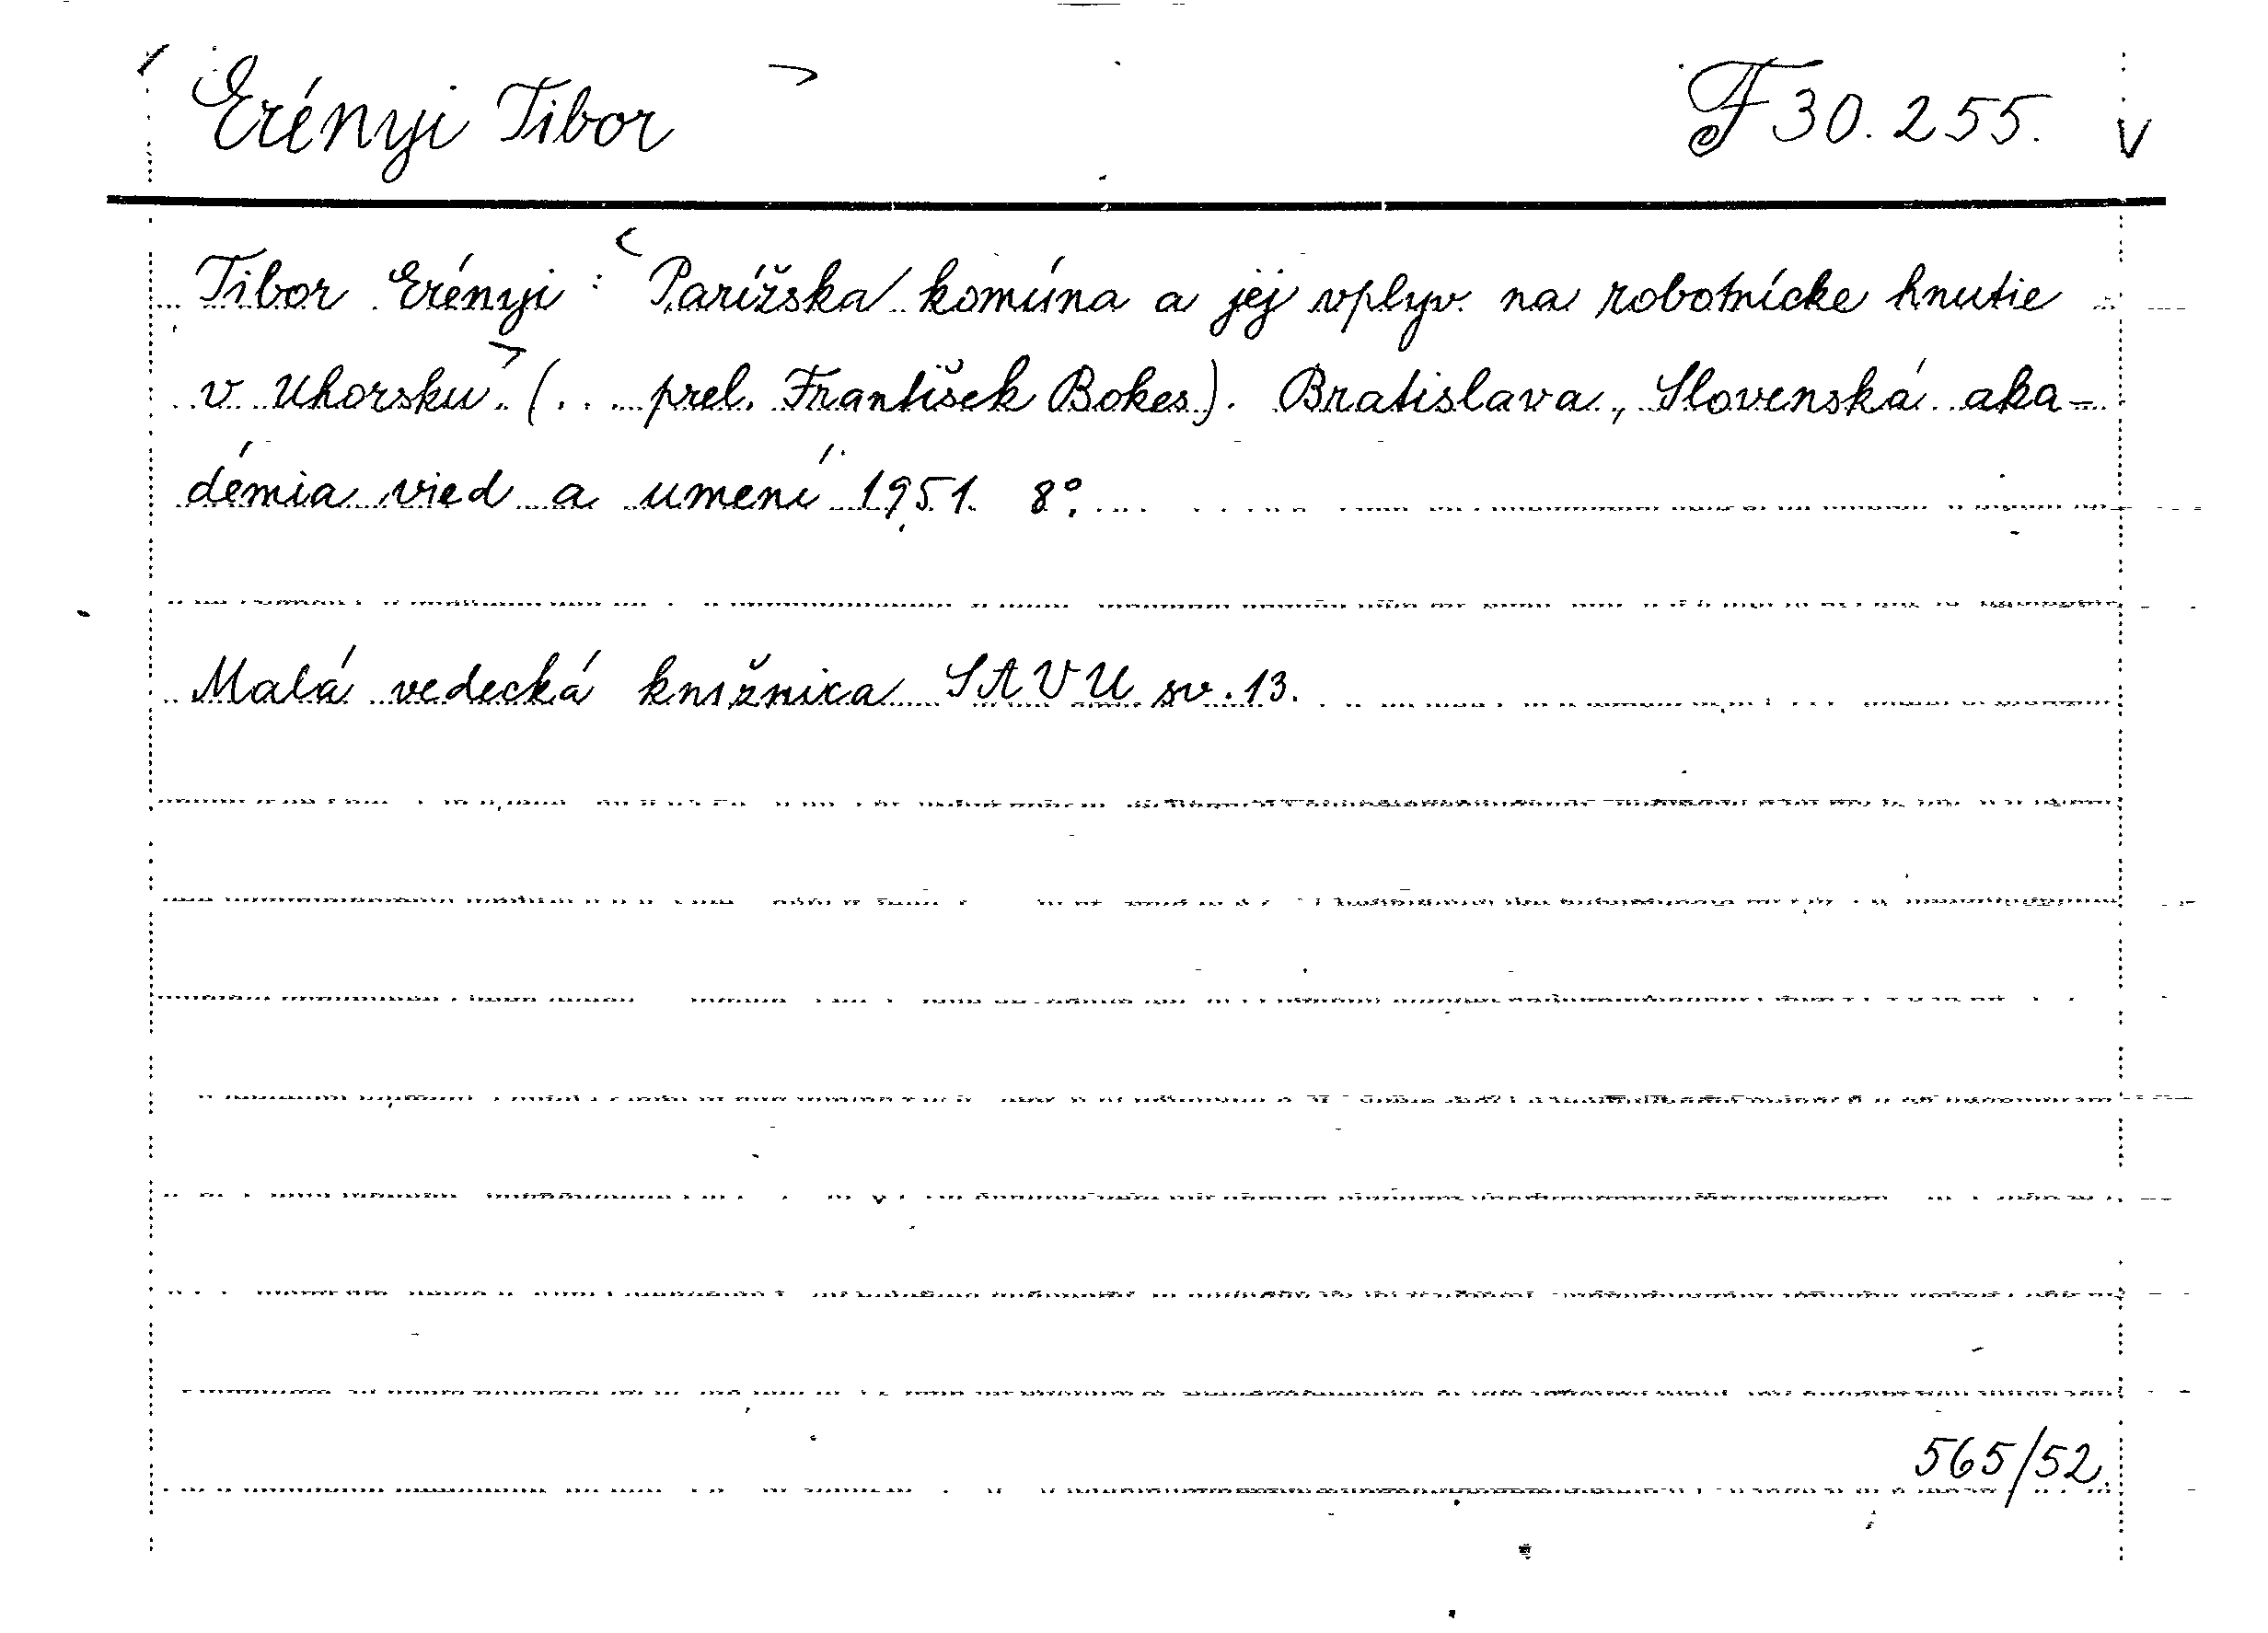 Erényi Tibor F 30.255. V
Tibor Erényi: Parížska komúna a jej vplyv na robotnícke hnutie
v Uhorsku. (... prel. František Bokes). Bratislava, Slovenská aka-
démia vied a umení 1951. 8°.
Malá vedecká knižnica SAVU sv. 13.
565/52.